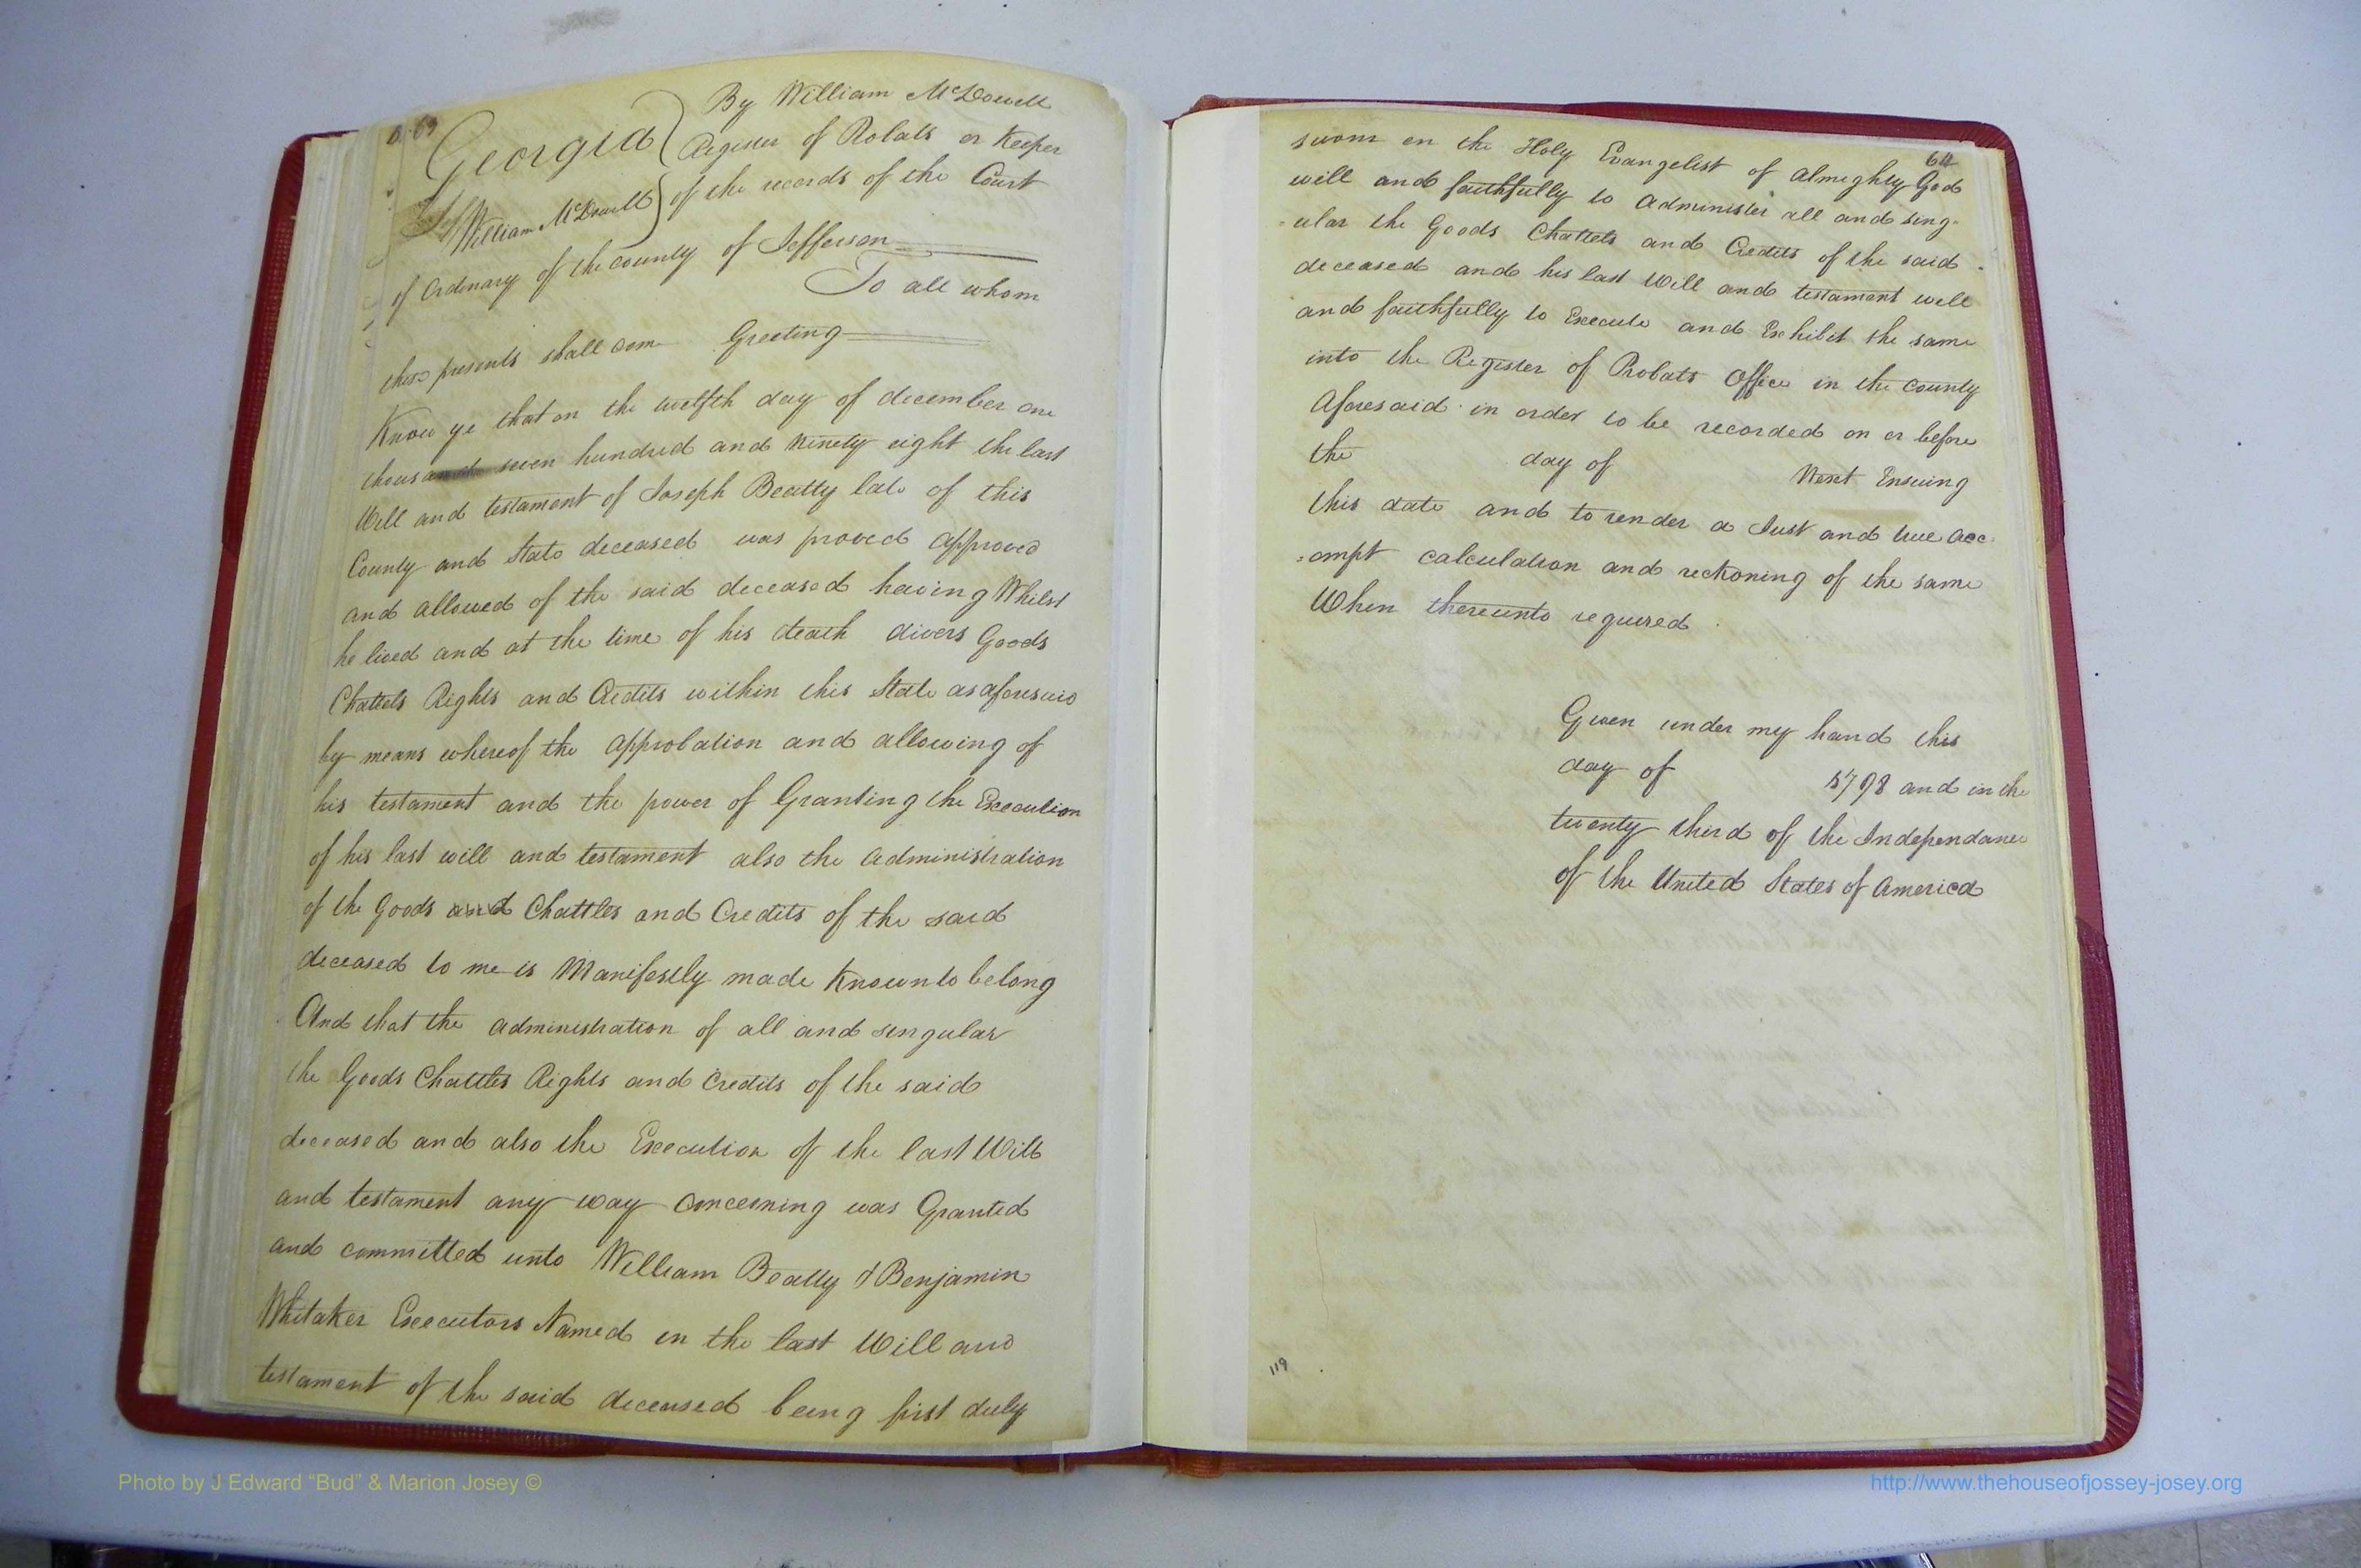 63
Georgia } By William McDowell
Register of Probats or Keeper
William McDowell } of the records of the Court
of Ordinary of the county of Jefferson
To all whom
these presents shall come Greeting
Know ye that on the twelfth day of december one
thousand seven hundred and Ninety eight the last
Will and testament of Joseph Beatty late of this
County and State deceased was proved approved
and allowed of the said deceased having Whilst
he lived and at the time of his death divers Goods
Chattels Rights and Credits within this State as aforesaid
by means whereof the approbation and allowing of
his testament and the power of Granting the Execution
of his last will and testament also the administration
of the Goods and Chattles and Credits of the said
deceased to me is Manifestly made Known to belong
And that the administration of all and singular
the Goods Chattles Rights and Credits of the said
deceased and also the Execution of the last Will
and testament any way concerning was Granted
and committed unto William Beatty & Benjamin
Whitaker Executors Named in the last Will and
testament of the said deceased being first duly
64
sworn on the Holy Evangelist of almighty God
will and faithfully to administer all and sing-
-ular the Goods Chattels and Credits of the said
deceased and his last Will and testament well
and faithfully to Execute and Exhibit the same
into the Register of Probats Office in the county
Aforesaid in order to be recorded on or before
the day of Next Ensuing
this date and to render a Just and true acc-
-ompt calculation and reckoning of the same
When thereunto required
Given under my hand this
day of 1798 and in the
twenty third of the Independance
of the United States of America
119
Photo by J Edward “Bud” & Marion Josey ©
http://www.thehouseofjossey-josey.org